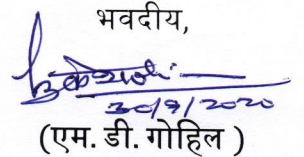 भवदीय,
30/9/2020
(एम. डी. गोहिल )